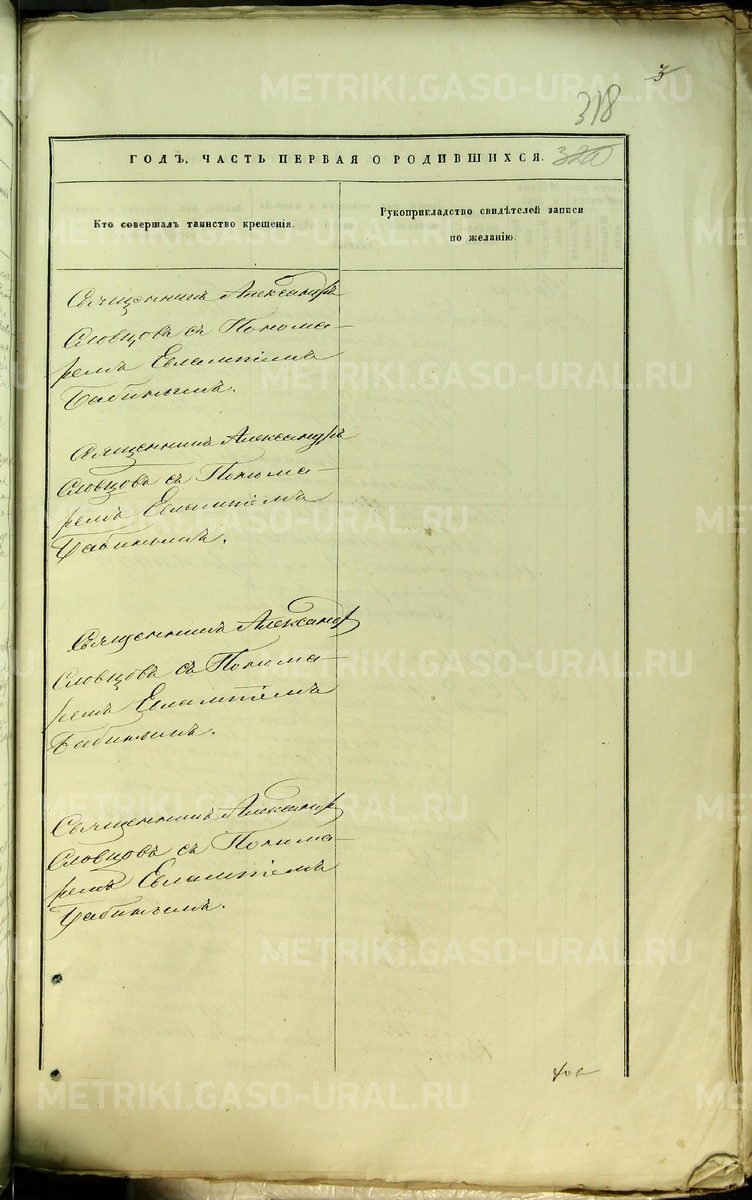 3
318
ГОДЪ, ЧАСТЬ ПЕРВАЯ О РОДИВШИХСЯ. 320
Кто совершалъ таинство крещенія.
Рукоприкладство свидѣтелей записи
по желанію.
Священникъ Александръ
Словцовъ съ Понома-
ремъ Евлампіемъ
Бабинымъ.
Священникъ Александръ
Словцовъ съ Понома-
ремъ Евлампіемъ
Бабинымъ.
Священникъ Александр
Словцовъ съ Понома-
ремъ Евлампіемъ
Бабинымъ.
Священникъ Александр
Словцовъ съ Понома-
ремъ Евлампіемъ
Бабинымъ.
METRIKI.GASO-URAL.RU